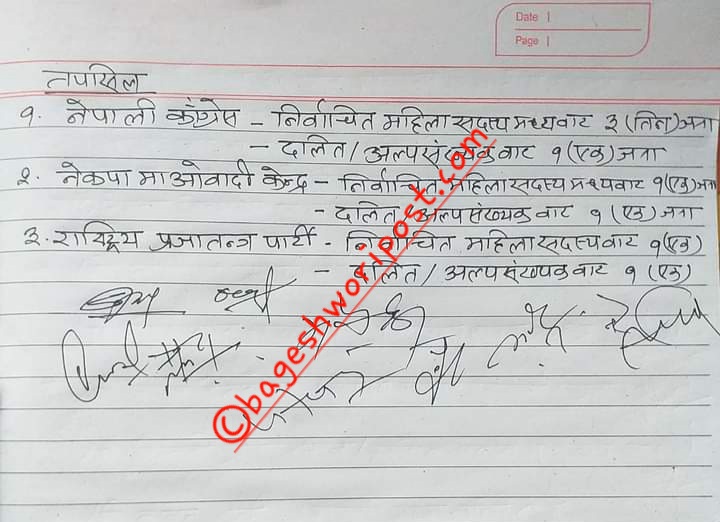 Date
Page
तपसिल
१. नेपाली काँग्रेस - निर्वाचित महिला सदस्य मध्यबाट ३ (तिन) जना
- दलित/अल्पसंख्यक बाट १ (एक) जना
२. नेकपा माओवादी केन्द्र - निर्वाचित महिला सदस्य मध्यबाट १ (एक) जना
- दलित/अल्पसंख्यक बाट १ (एक) जना
३. राष्ट्रिय प्रजातन्त्र पार्टी - निर्वाचित महिला सदस्यबाट १ (एक)
- दलित/अल्पसंख्यक बाट १ (एक)
©bageshworipost.com